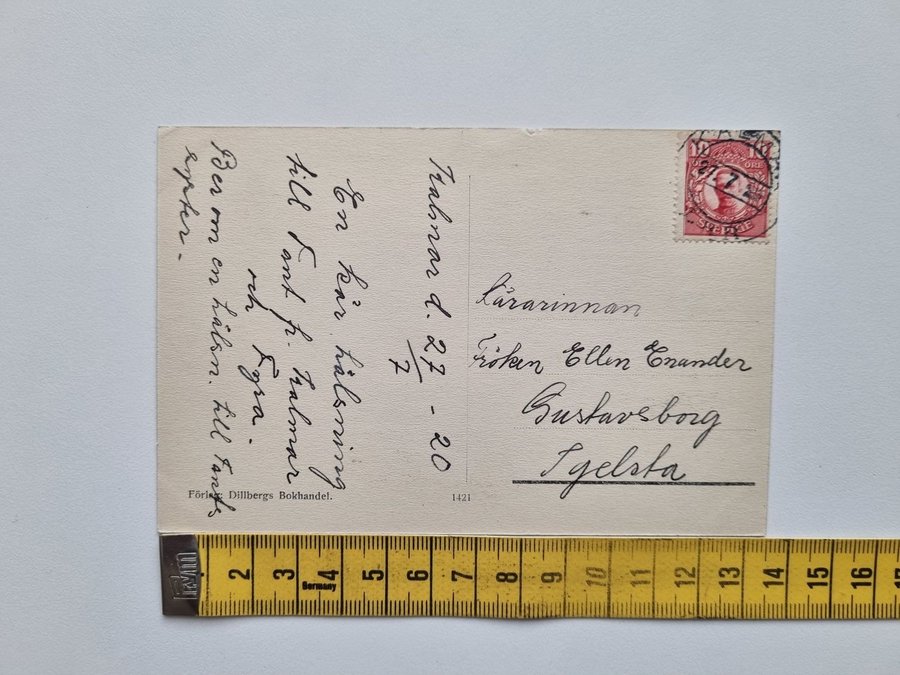 Kalmar d. 27/7 - 20
En kär hälsning
till Tant fr. Kalmar
och Tyra.
Ber om en hälsn. till Tants
syster.
Förlag: Dillbergs Bokhandel.
1421
10 10
ÖRE
SVERIGE
KALMAR
27. 7
Lärarinnan
Fröken Ellen Enander
Gustavsborg
Tjelsta
2 3 4 5 6 7 8 9 10 11 12 13 14 15 16 17
Germany